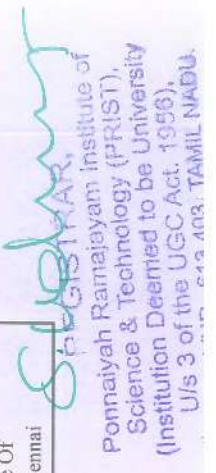 e Of
ennai
REGISTRAR,
Ponnaiyah Ramajayam Institute of
Science & Technology (PRIST),
(Institution Deemed to be University
U/s 3 of the UGC Act. 1956),
613 403. TAMIL NADU.